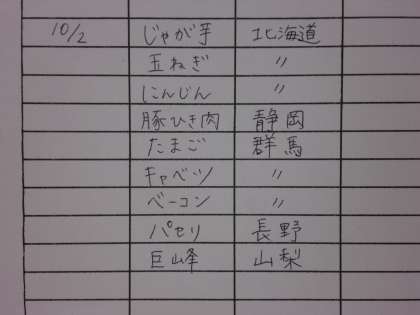 10/2 じゃが芋 北海道
玉ねぎ 〃
にんじん 〃
豚ひき肉 静岡
たまご 群馬
キャベツ 〃
ベーコン 〃
パセリ 長野
巨峰 山梨